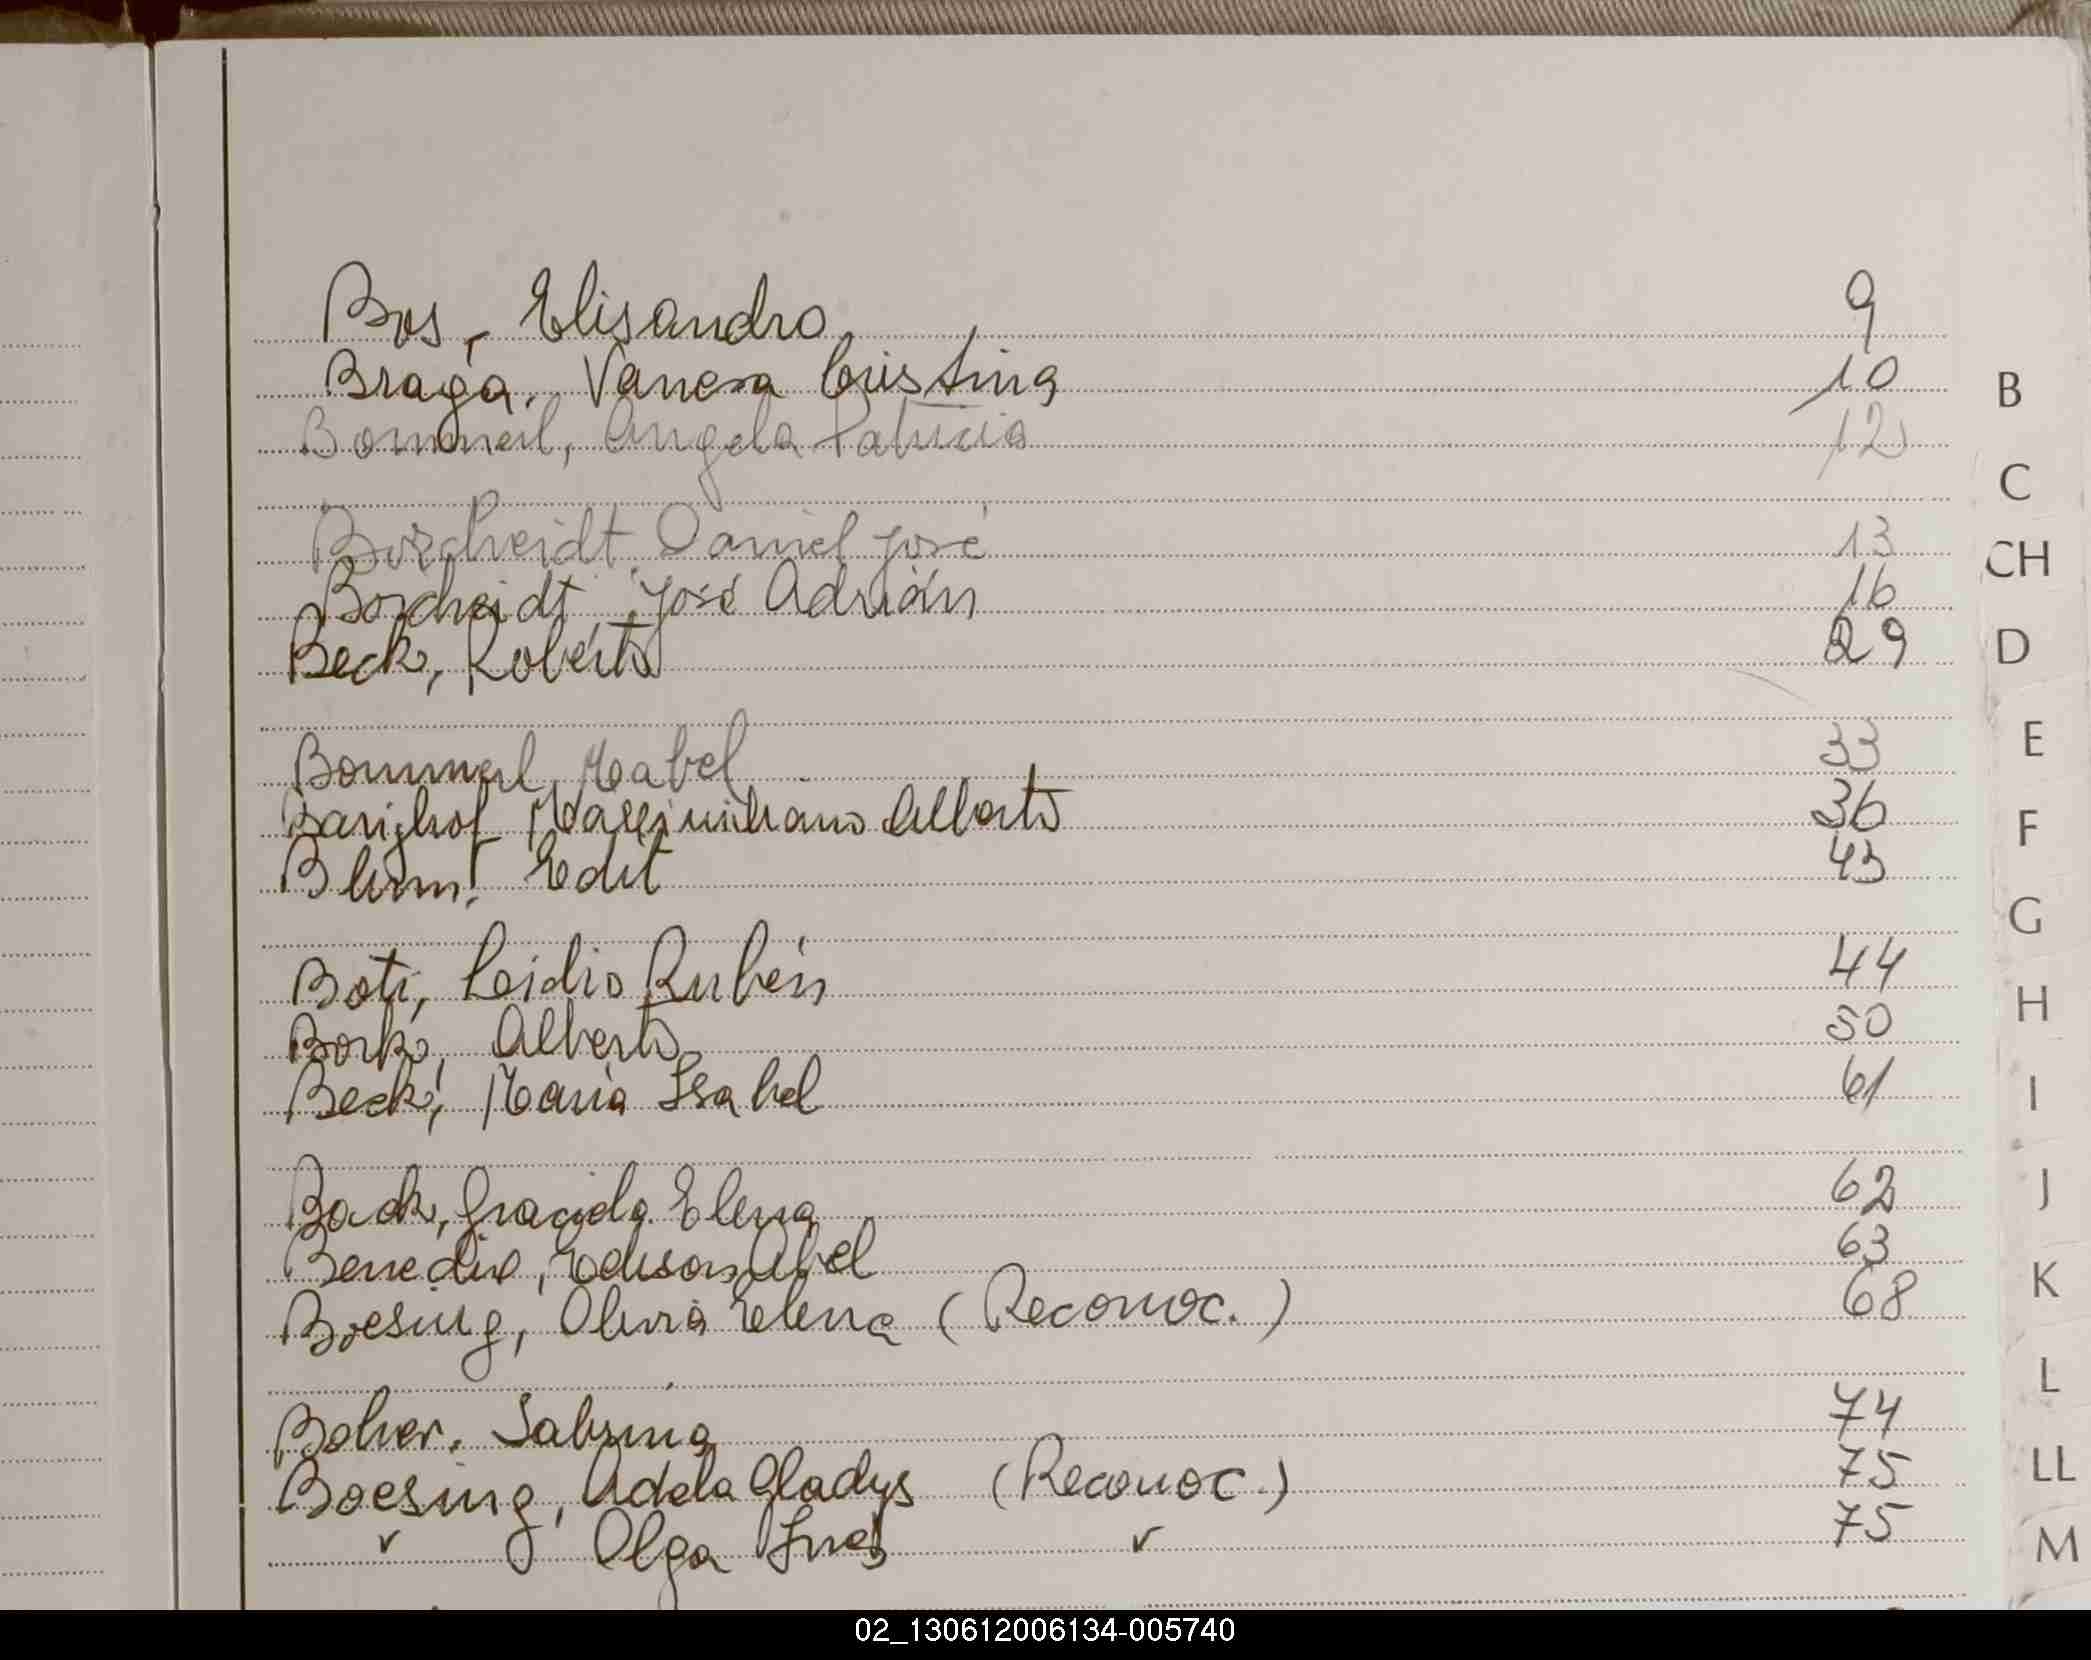 Bos, Elisandro 9
Braga, Vanesa Cristina 10
B
Bommerl, Angela Patricia 12
C
Borcheidt, Daniel José 13
CH
Borcheidt, José Adrián 16
Beck, Roberto 29
D
Bommerl, Mabel 33
E
Maximiliano Alberto 36
F
Blum, Edit 43
G
Boti, Leidio Rubén 44
H
Borko, Alberto 50
Beck, Maria Isabel 61
I
Back, Graciela Elena 62
J
Edison Abel 63
K
Boesing, Olivia Elena (Reconoc.) 68
L
Boher, Sabrina 74
Boesing, Adela Gladys (Reconoc.) 75
LL
" Olga Inés " 75
M
02_130612006134-005740